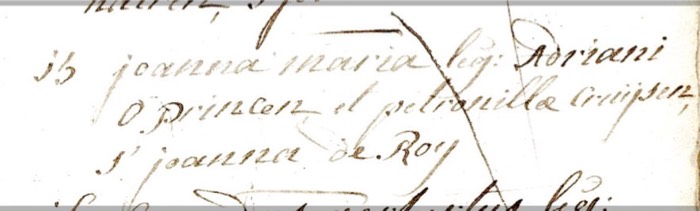 15 joanna maria leg: Adriani
O Princen, et petronillæ Cruijsen,
s' joanna de Roy
leg: